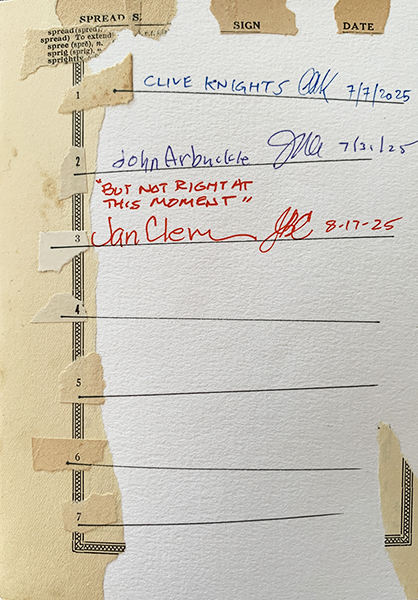 SPREAD S
SIGN
DATE
spread (spred),
spread) To extend
spree (sprē), n.
sprig (sprig),
sprightly
1 CLIVE KNIGHTS CAK 7/7/2025
2 John Arbuckle JMA 7/31/25
"BUT NOT RIGHT AT
THIS MOMENT"
3 Jan Clem JBC 8-17-25
4
5
6
7